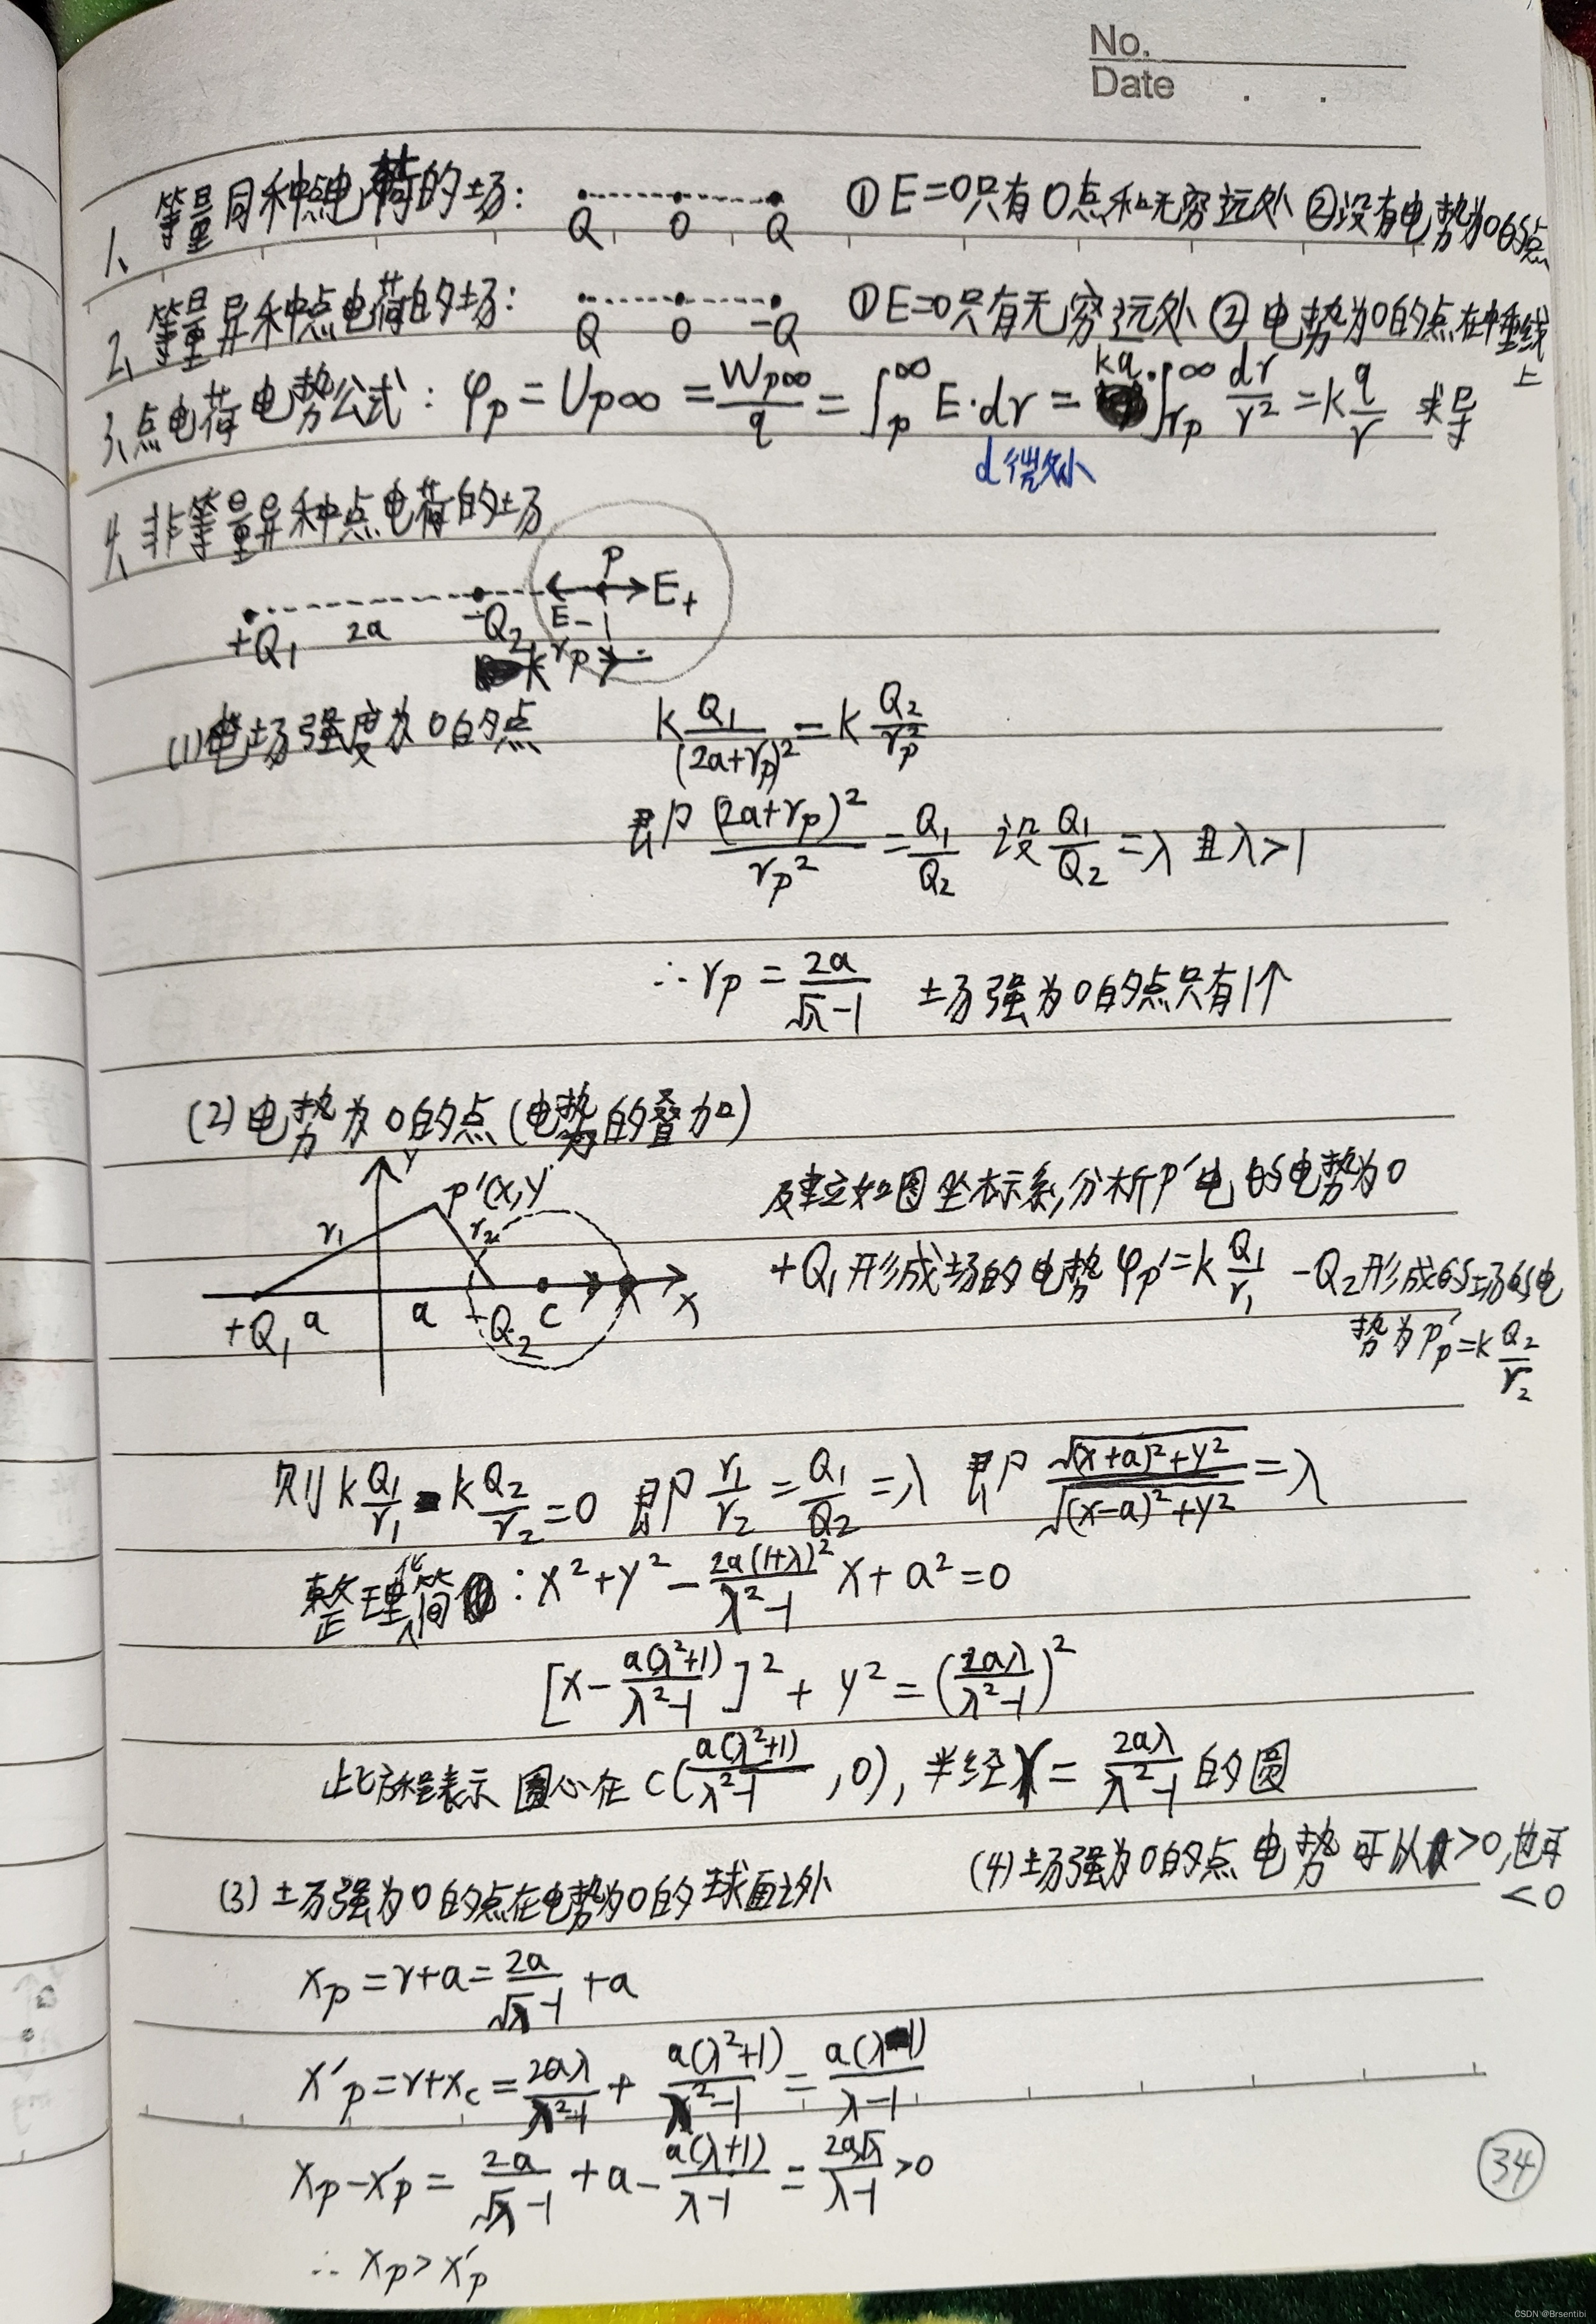 No.
Date . .
1、等量同种点电荷的场： Q O Q ①E=0只有O点和无穷远处 ②没有电势为0的点
2、等量异种点电荷的场： Q O -Q ①E=0只有无穷远处 ②电势为0的点在中垂线上
3、点电荷电势公式：φp=Up∞=Wp∞/q=∫p^∞ E·dr=kq·∫rp^∞ dr/r²=k q/r 求导
d微小
4、非等量异种点电荷的场
P
+Q₁ 2a -Q₂ E- E+
rp
(1)电场强度为0的点 k Q₁/(2a+rp)²=k Q₂/rp²
即 (2a+rp)²/rp²=Q₁/Q₂ 设 Q₁/Q₂=λ 且λ>1
∴rp=2a/(√λ-1) 场强为0的点只有1个
(2)电势为0的点(电势的叠加)
y P'(x,y
r₁ r₂
+Q₁ a a -Q₂ C x
建立如图坐标系,分析P'电的电势为0
+Q₁形成场的电势φp'=k Q₁/r₁ -Q₂形成的场的电
势为p'p=k Q₂/r₂
则k Q₁/r₁-k Q₂/r₂=0 即 r₁/r₂=Q₁/Q₂=λ 即 √(x+a)²+y²/√(x-a)²+y²=λ
整理化简：x²+y²-2a(1+λ)²/(λ²-1) x+a²=0
[x-a(λ²+1)/(λ²-1)]²+y²=(2aλ/(λ²-1))²
此方程表示圆心在C(a(λ²+1)/(λ²-1),0),半经r=2aλ/(λ²-1)的圆
(3)场强为0的点在电势为0的球面之外
(4)场强为0的点电势可以>0,也可
<0
xp=r+a=2a/(√λ-1)+a
x'p=r+xc=2aλ/(λ²-1)+a(λ²+1)/(λ²-1)=a(λ+1)/(λ-1)
xp-x'p=2a/(√λ-1)+a-a(λ+1)/(λ-1)=2a√λ/(λ-1)>0
∴xp>x'p
34
CSDN @Brsentibi